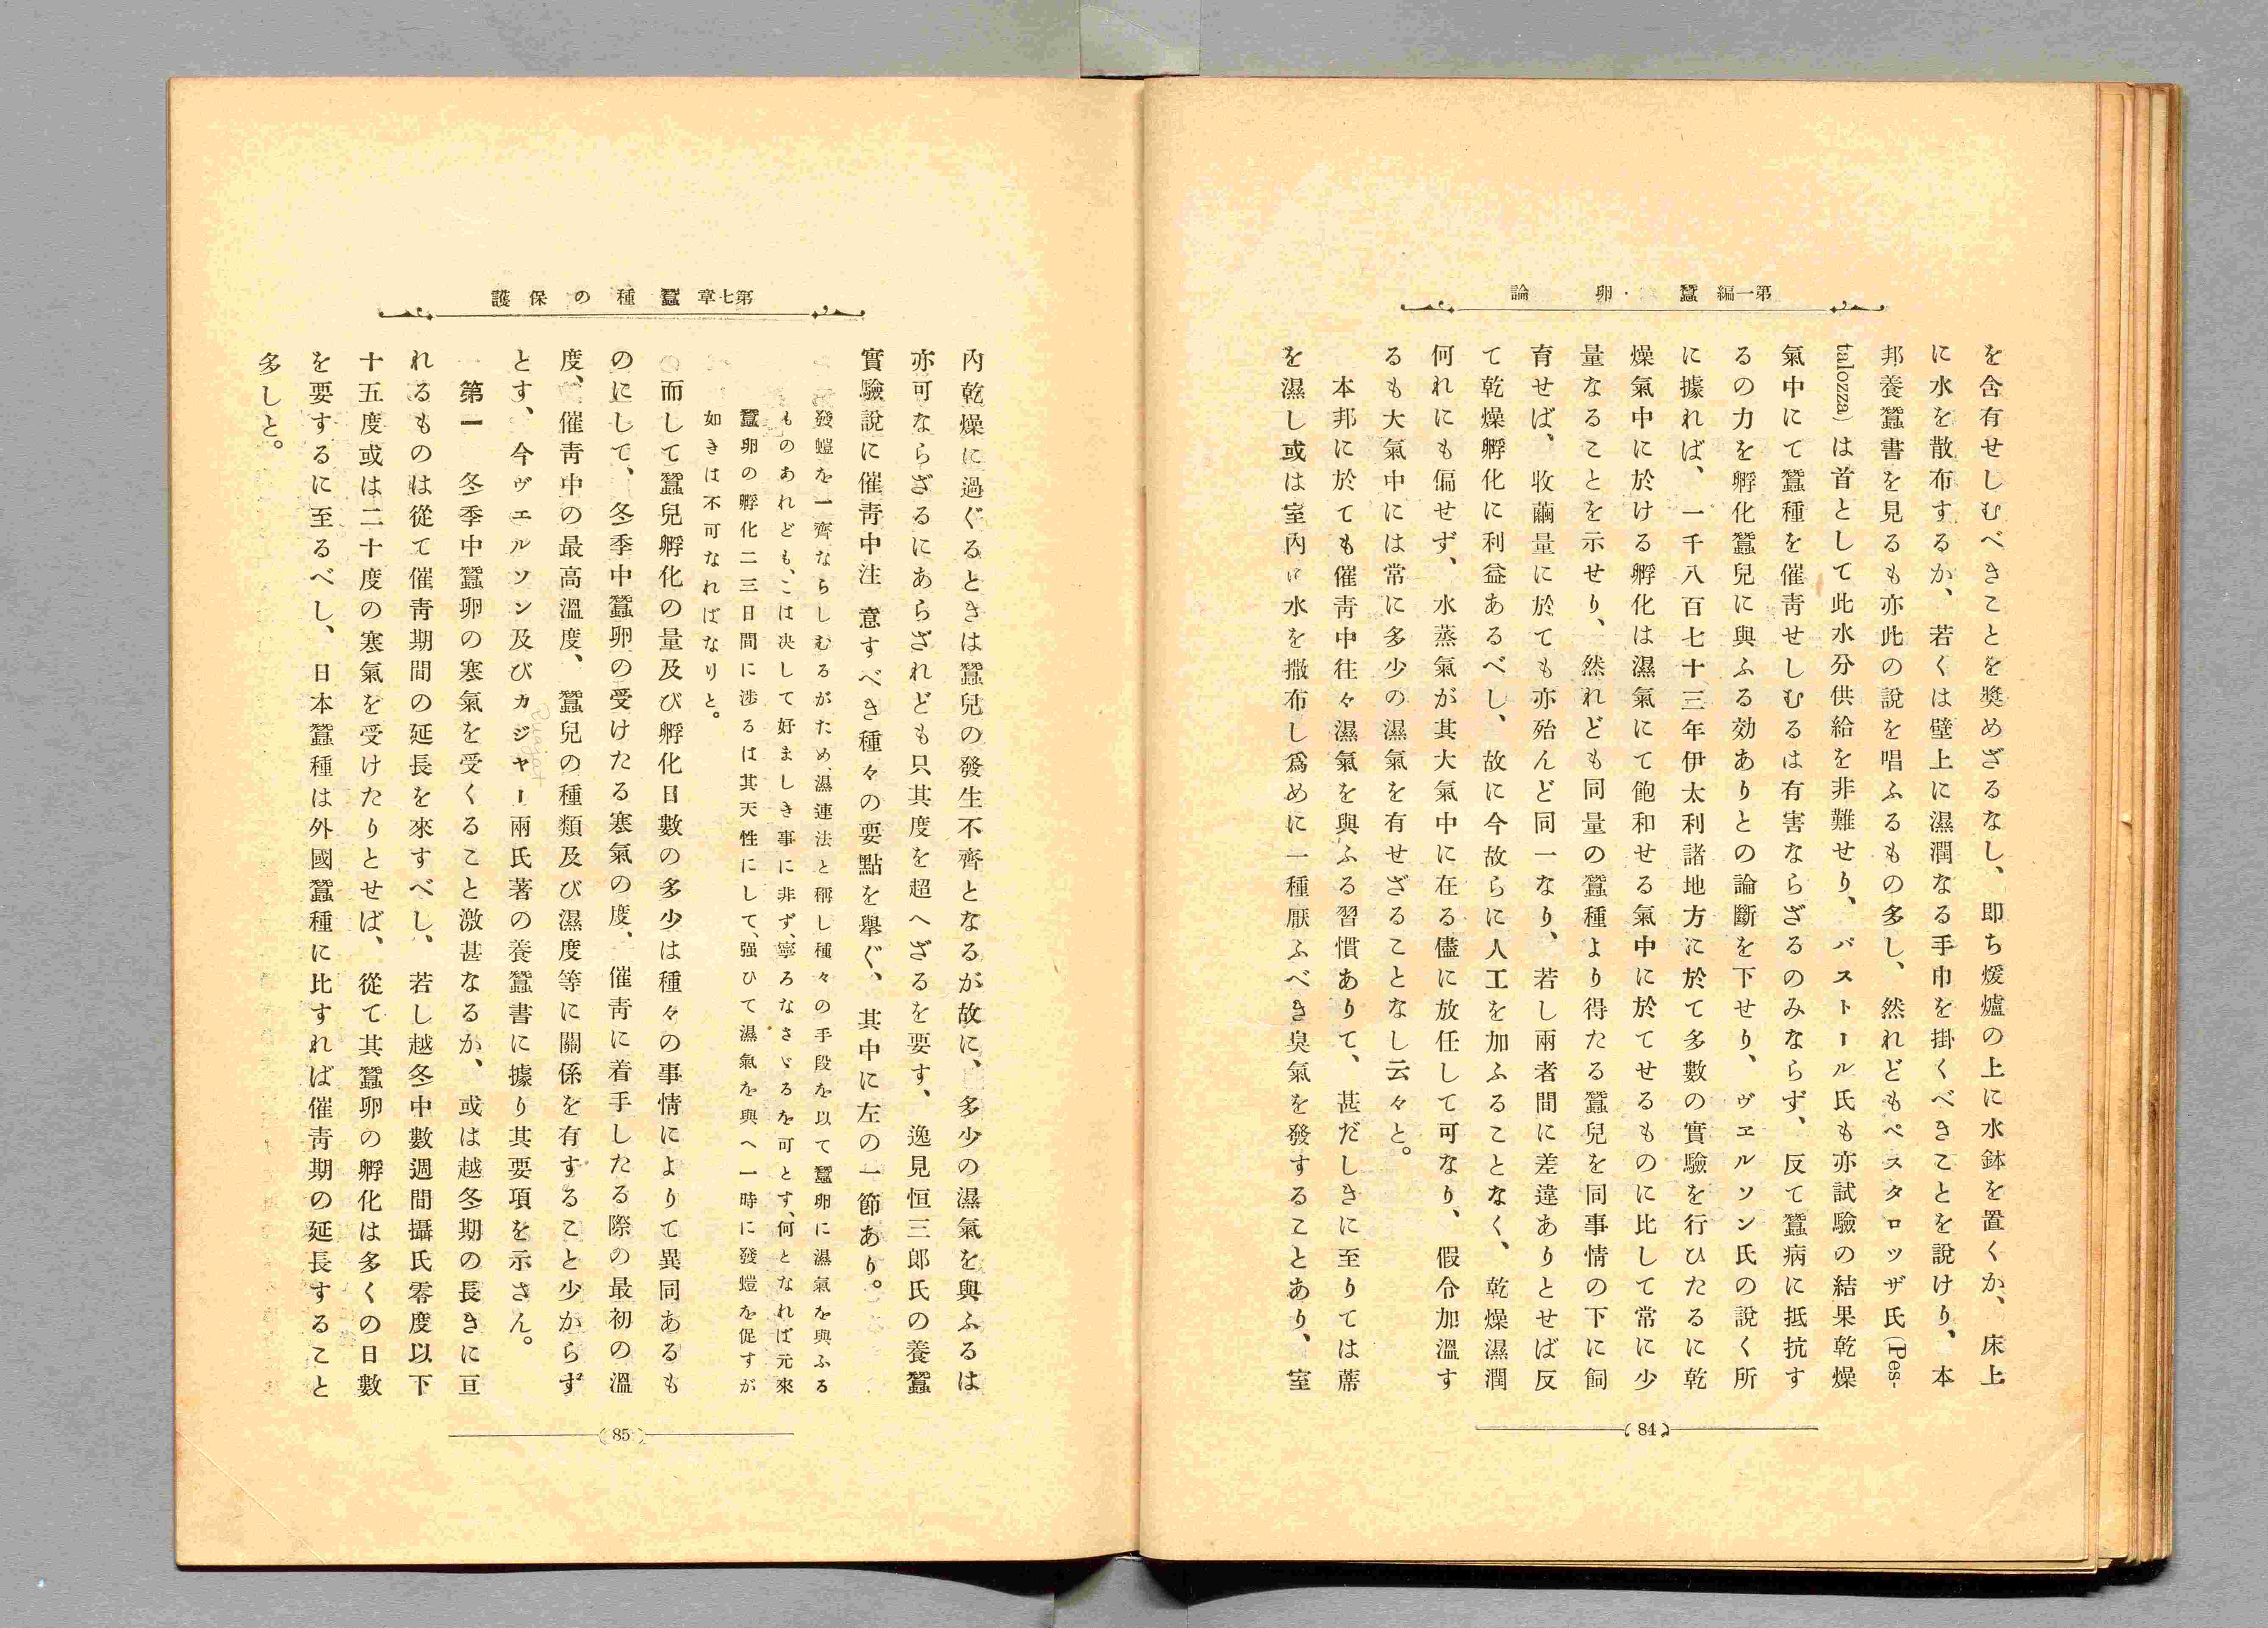 第一編　蠶卵論
を含有せしむべきことを奬めざるなし、即ち煖爐の上に水鉢を置くか、床上
に水を散布するか、若くは壁上に濕潤なる手巾を掛くべきことを說けり、本
邦養蠶書を見るも亦此の說を唱ふるもの多し、然れどもペスタロッザ氏(Pes-
talozza)は首として此水分供給を非難せり、パストール氏も亦試驗の結果乾燥
氣中にて蠶種を催靑せしむるは有害ならざるのみならず、反て蠶病に抵抗す
るの力を孵化蠶兒に與ふる効ありとの論斷を下せり、ヴェルソン氏の說く所
に據れば、一千八百七十三年伊太利諸地方に於て多數の實驗を行ひたるに乾
燥氣中に於ける孵化は濕氣にて飽和せる氣中に於てせるものに比して常に少
量なることを示せり、然れども同量の蠶種より得たる蠶兒を同事情の下に飼
育せば、收繭量に於ても亦殆んど同一なり、若し兩者間に差違ありとせば反
て乾燥孵化に利益あるべし、故に今故らに人工を加ふることなく、乾燥濕潤
何れにも偏せず、水蒸氣が其大氣中に在る儘に放任して可なり、假令加溫す
るも大氣中には常に多少の濕氣を有せざることなし云々と。
本邦に於ても催靑中往々濕氣を與ふる習慣ありて、甚だしきに至りては蓆
を濕し或は室內に水を撒布し爲めに一種厭ふべき臭氣を發することあり、室
84
第七章　蠶種の保護
內乾燥に過ぐるときは蠶兒の發生不齊となるが故に、多少の濕氣を與ふるは
亦可ならざるにあらざれども只其度を超へざるを要す、逸見恒三郎氏の養蠶
實驗說に催靑中注意すべき種々の要點を舉ぐ、其中に左の一節あり。
發螘を一齊ならしむるがため、濕連法と稱し種々の手段を以て蠶卵に濕氣を與ふる
ものあれども、こは决して好ましき事に非ず、寧ろなさゞるを可とす、何となれば元來
蠶卵の孵化二三日間に涉るは其天性にして、强ひて濕氣を與へ一時に發螘を促すが
如きは不可なればなりと。
而して蠶兒孵化の量及び孵化日數の多少は種々の事情によりて異同あるも
のにして、冬季中蠶卵の受けたる寒氣の度、催靑に着手したる際の最初の溫
度、催靑中の最高溫度、蠶兒の種類及び濕度等に關係を有すること少からず
とす、今ヴェルソン及びカジャー兩氏著の養蠶書に據り其要項を示さん。
第一　冬季中蠶卵の寒氣を受くること激甚なるか、或は越冬期の長きに亘
れるものは從て催靑期間の延長を來すべし、若し越冬中數週間攝氏零度以下
十五度或は二十度の寒氣を受けたりとせば、從て其蠶卵の孵化は多くの日數
を要するに至るべし、日本蠶種は外國蠶種に比すれば催靑期の延長すること
多しと。
85